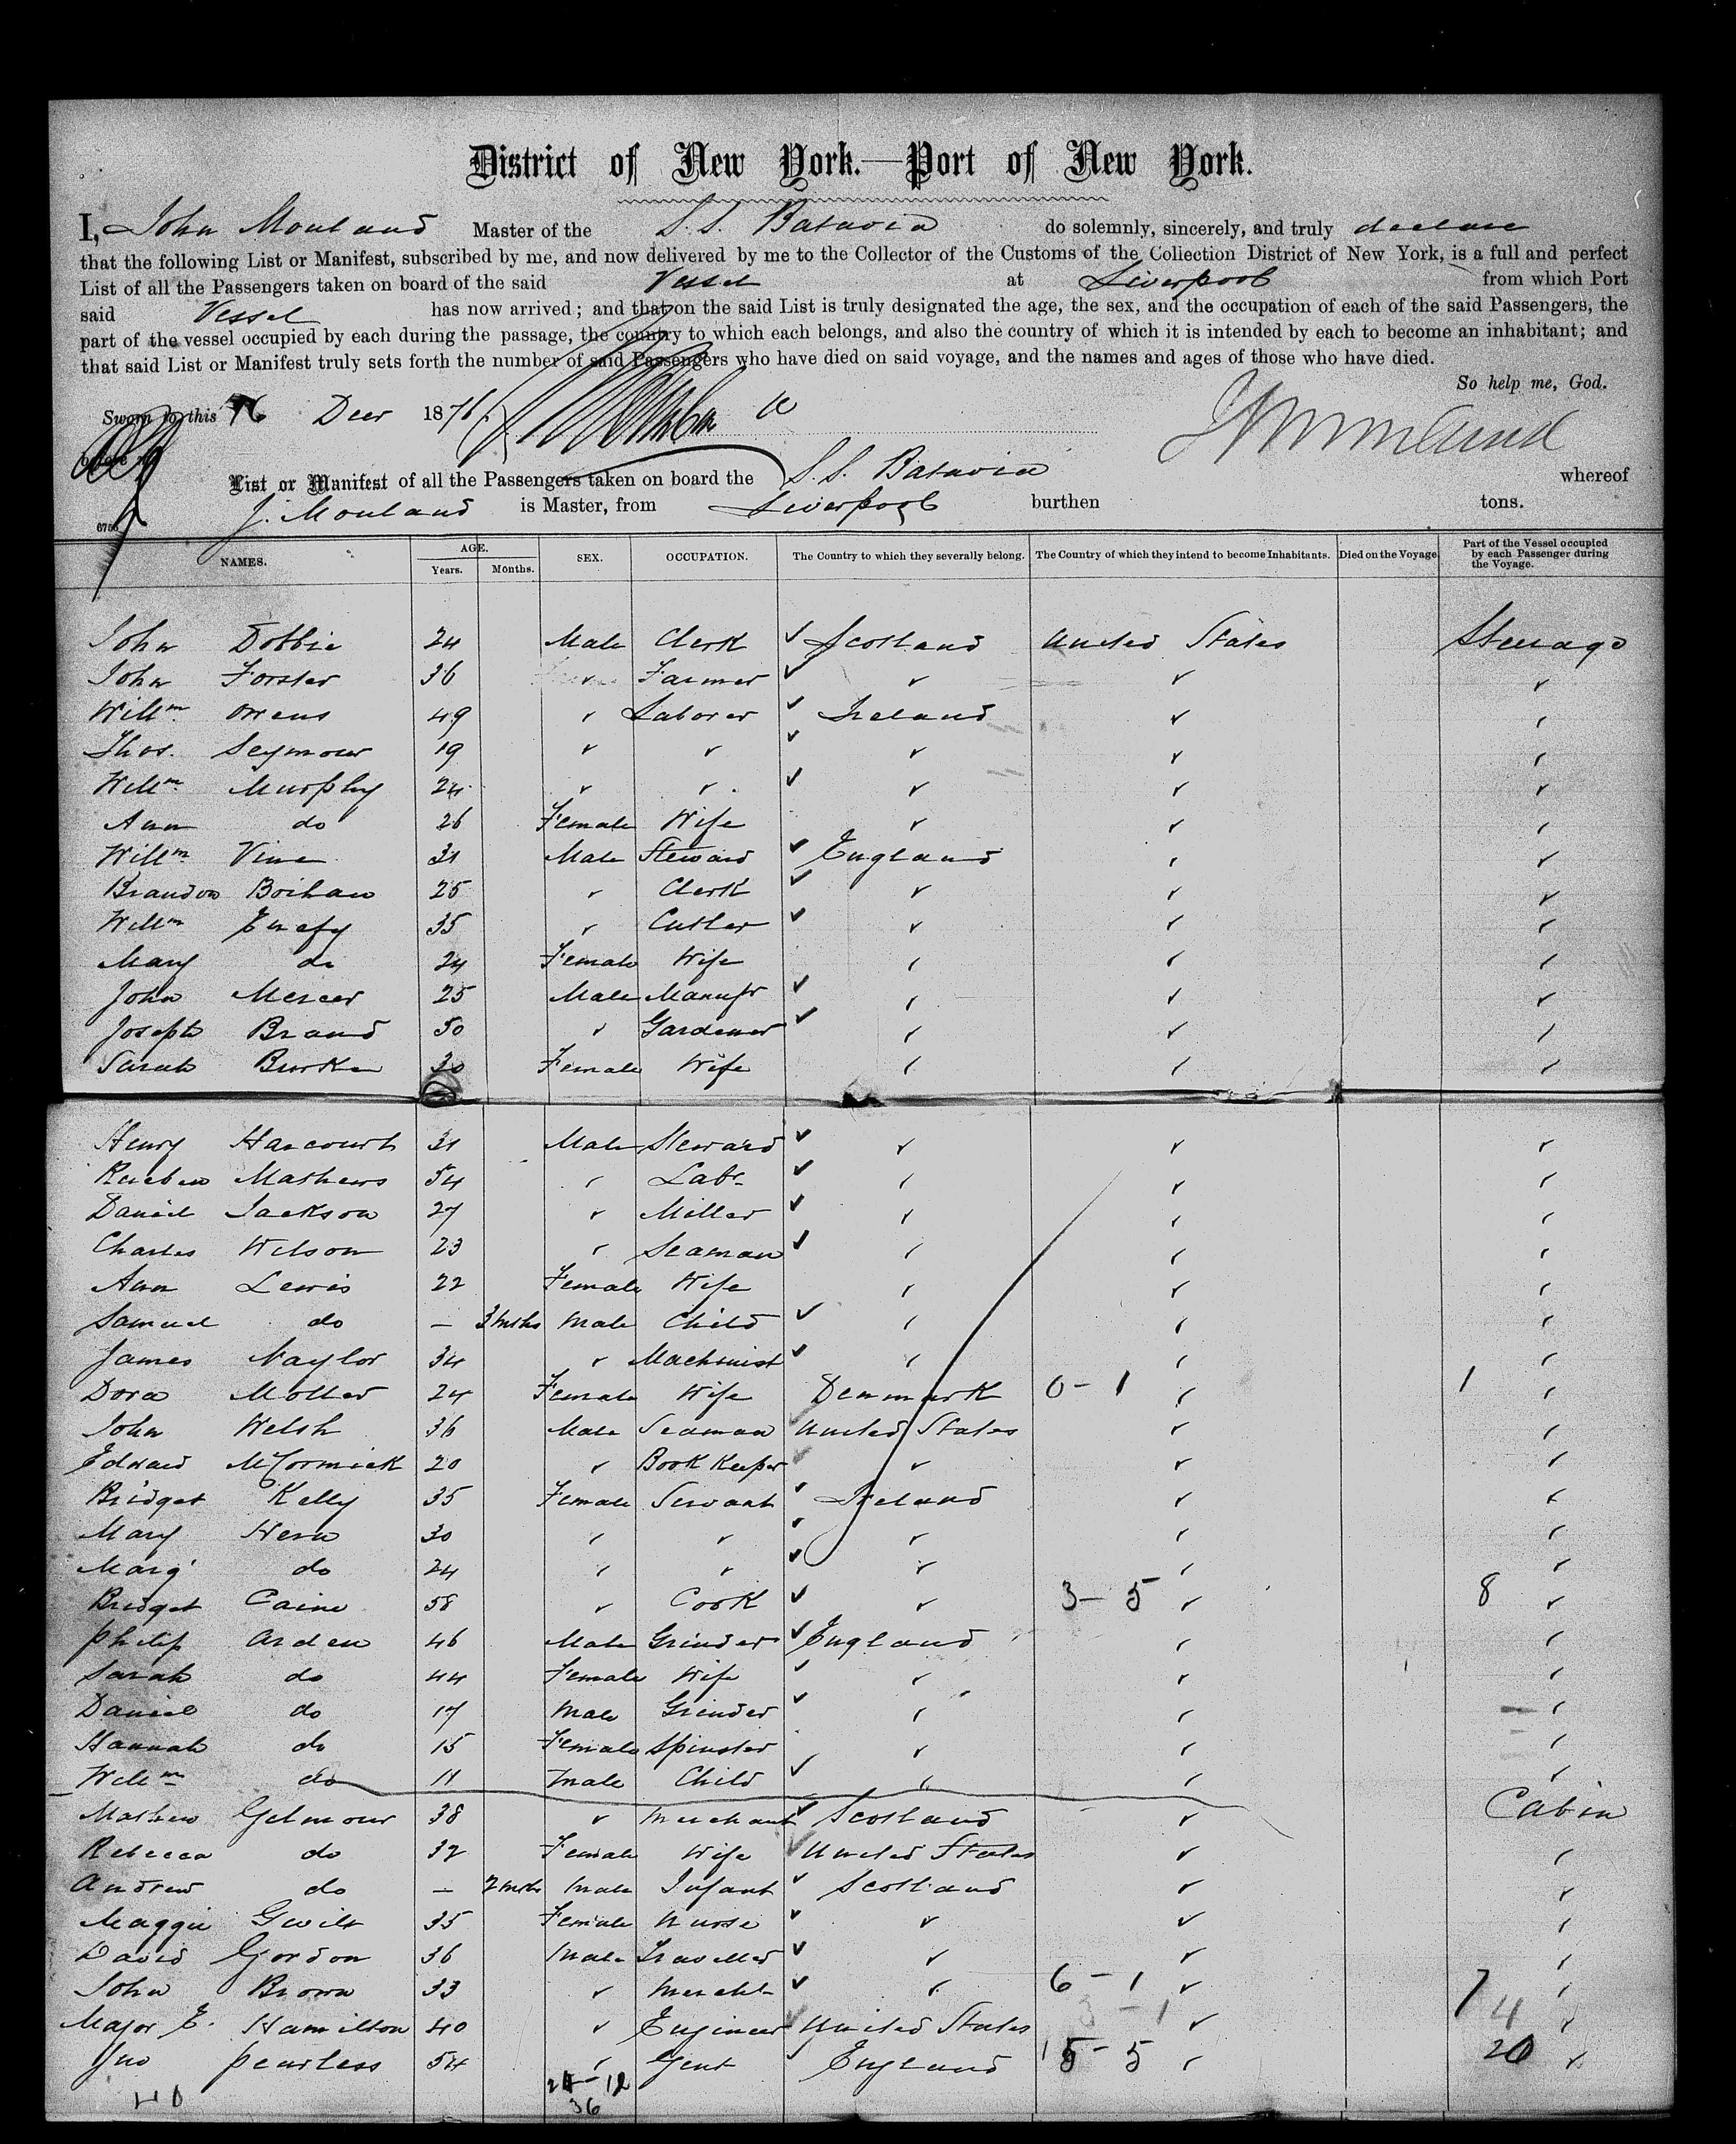 District of New York.—Port of New York.
I, John Mouland Master of the S.S. Batavia do solemnly, sincerely, and truly declare
that the following List or Manifest, subscribed by me, and now delivered by me to the Collector of the Customs of the Collection District of New York, is a full and perfect
List of all the Passengers taken on board of the said Vessel at Liverpool from which Port
said Vessel has now arrived; and that on the said List is truly designated the age, the sex, and the occupation of each of the said Passengers, the
part of the vessel occupied by each during the passage, the country to which each belongs, and also the country of which it is intended by each to become an inhabitant; and
that said List or Manifest truly sets forth the number of said Passengers who have died on said voyage, and the names and ages of those who have died.
So help me, God.
Sworn to this Decr 1876
List or Manifest of all the Passengers taken on board the S.S. Batavia whereof
J. Mouland is Master, from Liverpool burthen tons.
NAMES. AGE. Years. Months. SEX. OCCUPATION. The Country to which they severally belong. The Country of which they intend to become Inhabitants. Died on the Voyage Part of the Vessel occupied by each Passenger during the Voyage.
John Dobbie 24 Male Clerk ✓ Scotland United States Steerage
John Forster 36 ✓ Farmer ✓ ✓ ✓ ✓
Willm Owens 49 ✓ Laborer ✓ Ireland ✓ ✓
Thos. Seymour 19 ✓ ✓ ✓ ✓ ✓ ✓
Willm Murphy 24 ✓ ✓ ✓ ✓ ✓ ✓
Ann do 26 Female Wife ✓ ✓ ✓
Willm Vine 31 Male Steward ✓ England ✓ ✓
Brandon 25 ✓ Clerk ✓ ✓ ✓ ✓
Willm 35 ✓ Cutler ✓ ✓ ✓ ✓
Mary do 24 Female Wife ✓ ✓ ✓
John Mercer 25 Male Manufr ✓ ✓ ✓ ✓
Joseph Brand 50 ✓ Gardener ✓ ✓ ✓ ✓
Sarah Burke 30 Female Wife ✓ ✓ ✓
Henry Harcourt 31 Male Steward ✓ ✓ ✓ ✓
Rueben Mathews 54 ✓ Labr ✓ ✓ ✓ ✓
Daniel Jackson 27 ✓ Miller ✓ ✓ ✓ ✓
Charles Wilson 23 ✓ Seaman ✓ ✓ ✓ ✓
Ann Lewis 22 Female Wife ✓ ✓ ✓
Samuel do — 3 mths Male Child ✓ ✓ ✓ ✓
James Naylor 34 ✓ Machinist ✓ ✓ ✓ ✓
Dora Moller 24 Female Wife Denmark 0-1 ✓ 1 ✓
John Welsh 36 Male Seaman United States ✓ ✓
Edward McCormick 20 ✓ Book Keeper ✓ ✓ ✓
Bridget Kelly 35 Female Servant ✓ Ireland ✓ ✓
Mary Hern 30 ✓ ✓ ✓ ✓ ✓ ✓
Marg' do 24 ✓ ✓ ✓ ✓ ✓ ✓
Bridget Caine 58 ✓ Cook ✓ ✓ 3-5 ✓ 8 ✓
Philip Arden 46 Male Grinder ✓ England ✓ ✓
Sarah do 44 Female Wife ✓ ✓ ✓ ✓
Daniel do 17 Male Grinder ✓ ✓ ✓ ✓
Hannah do 15 Female Spinster ✓ ✓ ✓ ✓
Willm do 11 Male Child ✓ ✓ ✓ ✓
Mathew Gelmour 38 ✓ Merchant ✓ Scotland ✓ Cabin
Rebecca do 32 Female Wife ✓ United States ✓ ✓
Andrew do — 2 mths Male Infant ✓ Scotland ✓ ✓
Maggie Gwilt 35 Female Nurse ✓ ✓ ✓ ✓
David Gordon 36 Male Traveller ✓ ✓ ✓ ✓
John Brown 33 ✓ Mercht ✓ ✓ 6-1 ✓ 7 ✓
Major E. Hamilton 40 ✓ Engineer ✓ United States 3-1 ✓ 4 ✓
Jno Pearless 54 ✓ Gent ✓ England 15-5 ✓ 20 ✓
40 24-12
36